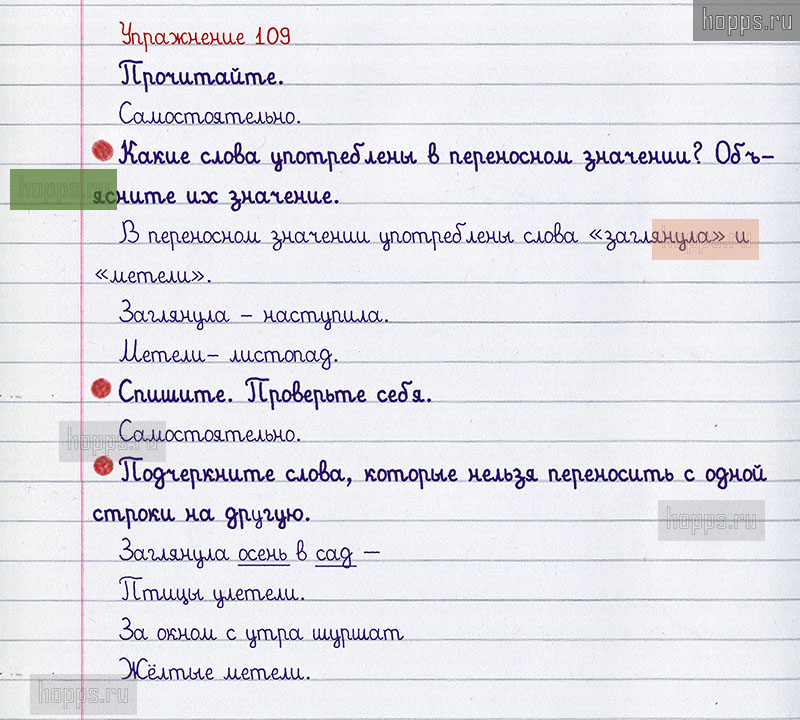 hopps.ru
Упражнение 109
Прочитайте.
Самостоятельно.
Какие слова употреблены в переносном значении? Объ-
hopps.ru
ясните их значение.
В переносном значении употреблены слова «заглянула» и
hopps.ru
«метели».
Заглянула – наступила.
Метели– листопад.
Спишите. Проверьте себя.
hopps.ru
Самостоятельно.
Подчеркните слова, которые нельзя переносить с одной
строки на другую.
hopps.ru
Заглянула осень в сад –
Птицы улетели.
За окном с утра шуршат
Жёлтые метели.
hopps.ru